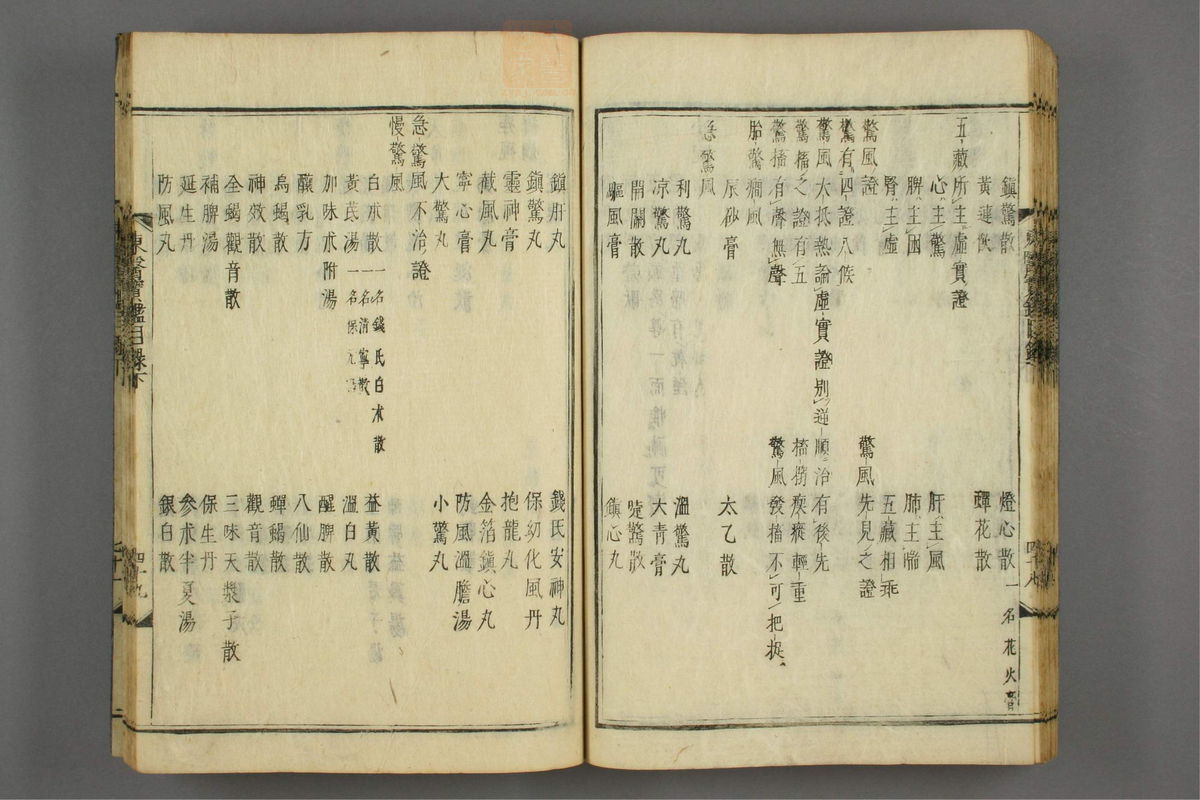 鎮驚散　燈心散 一名花火膏
黃連飲　蟬花散
五藏所主虛實證
心主驚　肝主風
脾主困　肺主喘
腎主虛　五藏相乘
驚風證　驚風先見之證
驚有四證八候
驚風大抵熱論虛實證別逆順治有後先
驚搐之證有五　搐搦瘈瘲輕重
驚搐有聲無聲　驚風發搐不可把捉
胎驚癎風
辰砂膏　太乙散
急驚風
利驚丸　溫驚丸
涼驚丸　大青膏
開關散　嚏驚散
驅風膏　鎮心丸
鎮肝丸　錢氏安神丸
鎮驚丸　保幼化風丹
靈神膏　抱龍丸
截風丸　金箔鎮心丸
寧心膏　防風溫膽湯
大驚丸　小驚丸
急驚風不治證
慢驚風
白朮散 一名錢氏白朮散 一名清寧散　益黃散
黃芪湯 一名保元湯　溫白丸
加味朮附湯　醒脾散
釀乳方　八仙散
烏蝎散　蟬蝎散
神效散　觀音散
全蝎觀音散　三味天漿子散
補脾湯　保生丹
延生丹　參朮半夏湯
防風丸　銀白散
東醫寶鑑目錄下
四十九